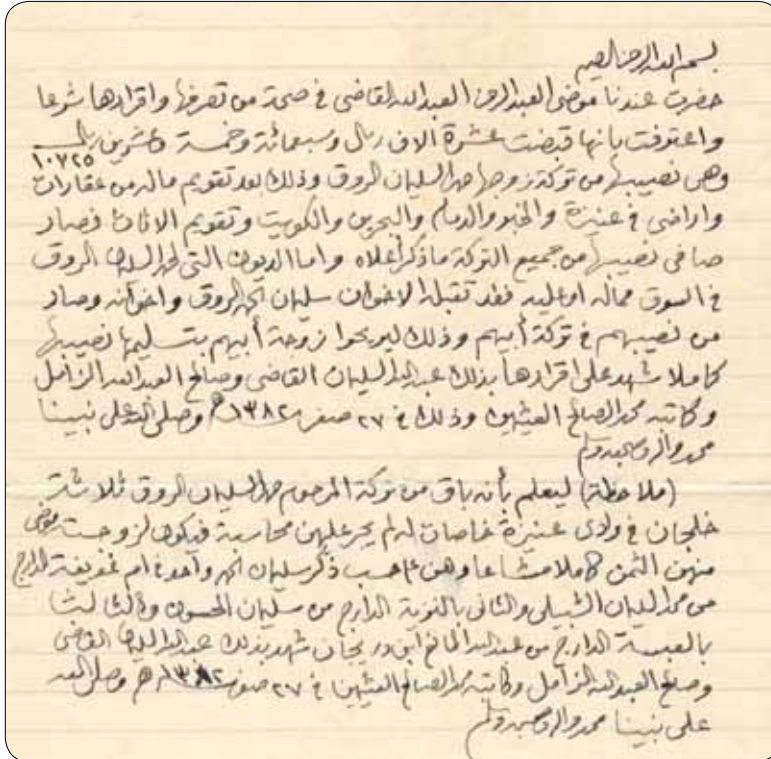 بسم الله الرحمن الرحيم
حضرت عندنا موضي العبد الرحمن العبد الله القاضي في صحة من تصرفها واقرارها شرعا
واعترفت بانها قبضت عشرة الاف ريال وسبعمائة وخمسة وعشرين ريال
١٠٧٢٥
وهي نصيبها من تركة زوجها حمد السليمان الروق وذلك بعد تقويم ماله من عقارات
واراضي في عنيزة والخبر والدمام والبحرين والكويت وتقويم الاثاث فصار
صافي نصيبها من جميع التركة ما ذكر أعلاه واما الديون التي لحمد السليمان الروق
في السوق مماله او عليه فقد تقبله الاخوان سليمان الحمد الروق واخوانه وصار
من نصيبهم في تركة أبيهم وذلك ليريحوا زوجة أبيهم بتسليمها نصيبها
كاملا شهد على اقرارها بذلك عبد الله السليمان القاضي وصالح العبد الله الزامل
وكاتبه محمد الصالح العثيمين وذلك في ٢٧ صفر ١٣٨٢هـ وصلى الله على نبينا
محمد واله وصحبه وسلم
(ملاحظة) ليعلم بأنه باق من تركة المرحوم حمد السليمان الروق ثلاثة
خلجان في وادي عنيزة خاصات له لم يجر عليهن محاسبة فيكون لزوجته موضي
منهن الثمن كاملا مشاعا وهن على حسب ذكر سليمان الحمد واحد في ام غويفة الدارج
من محمد السليمان الشبيلي والثاني بالنوية الدارج من سليمان الحسون والثالث
بالعبسة الدارج من عبد الله المانع ابن دريجان شهد بذلك عبد الله السليمان القاضي
وصالح العبد الله الزامل وكاتبه محمد الصالح العثيمين في ٢٧ صفر ١٣٨٢هـ وصلى الله
على نبينا محمد واله وصحبه وسلم